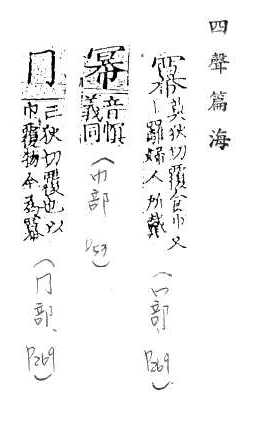 四聲篇海
冪 莫狄切覆食巾又
羅婦人所戴
（冖部 P269）
幂 音幎
義同
（巾部 P53）
冖 亡狄切覆也以
巾覆物今為冪
（冖部 P269）